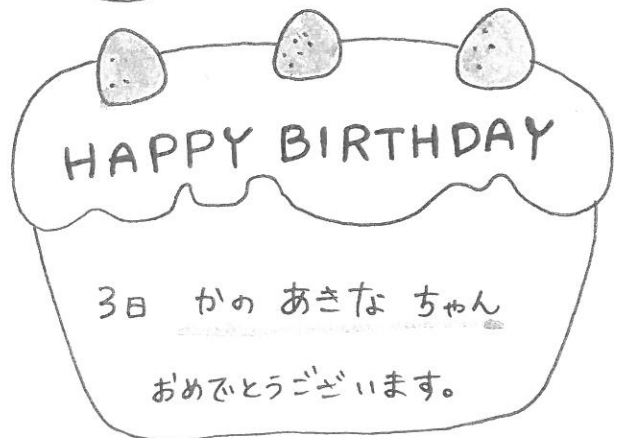 HAPPY BIRTHDAY
3日 かの あきな ちゃん
おめでとうございます。